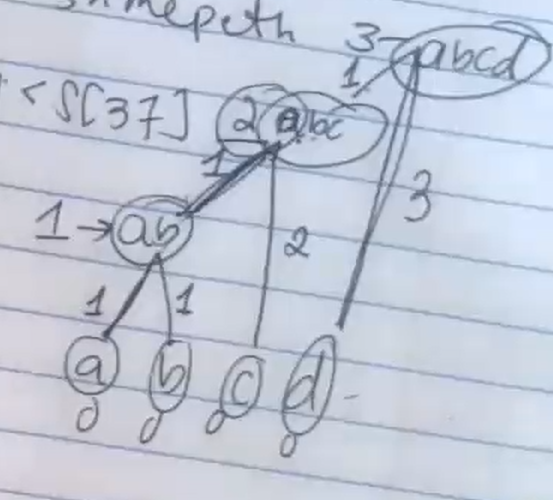 3 abcd
1
< S[37] 2 abc
1
1 → ab 3
2
1 1
a b c d
0 0 0 0